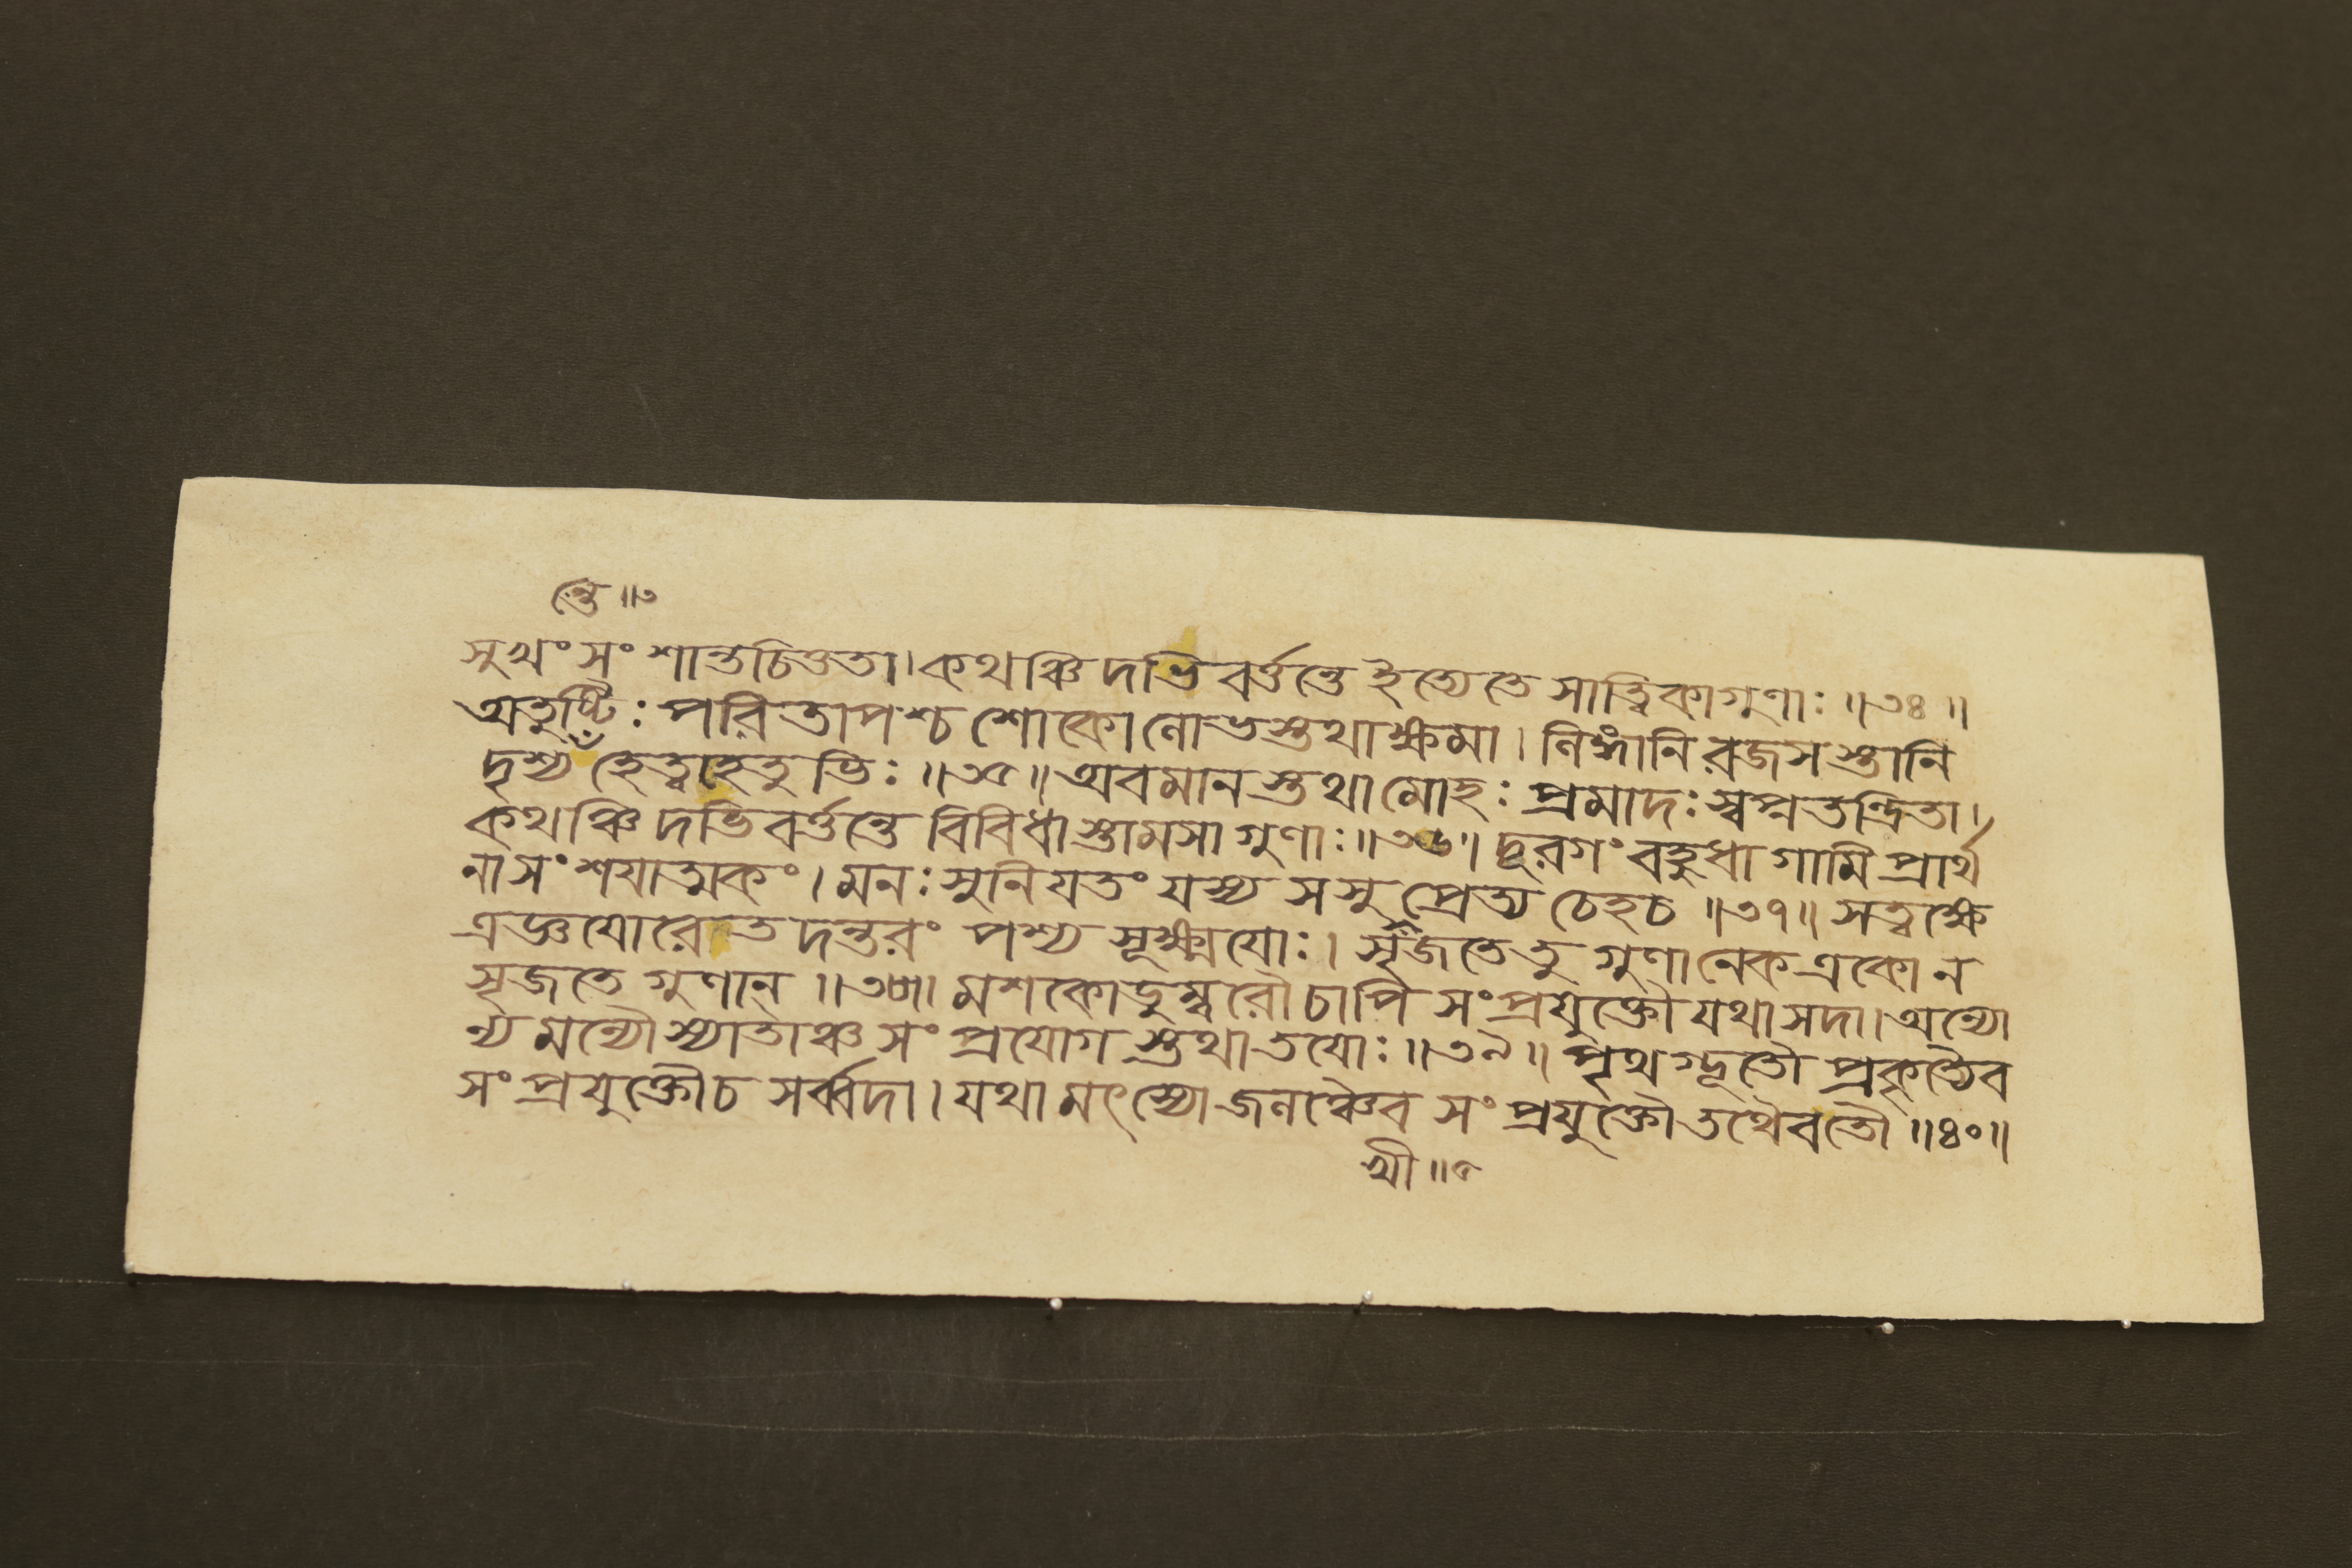 ন্তে ॥৩
সুখং সং শান্তচিত্ততা। কথঞ্চিদভিবর্ত্তন্তে ইত্যেতে সাত্ত্বিকাগুণাঃ ॥৩৪॥
অতুষ্টিঃ পরিতাপশ্চ শোকোণোভস্তথাক্ষমা। নিঙ্গানি রজসস্তানি
দৃশ্য হেত্বাহেতুভিঃ ॥৩৫॥ অবমানস্তথামোহঃ প্রমাদঃ স্বপ্নতন্দ্রিতা।
কথঞ্চিদভিবর্ত্তন্তে বিবিধাস্তামসাগুণাঃ ॥৩৬॥ দূরগং বহুধাগামি প্রার্থ
নাসংশযাত্মকং। মনঃ সুনিযতং যস্য স সু প্রেত্য চেহচ ॥৩৭॥ সত্বক্ষে
ত্রজ্ঞযোরেতদন্তরং পশ্য সূক্ষ্মযোঃ। সৃজতেতু গুণানেক একো ন
সৃজতে গুণান্ ॥৩৮॥ মশকোডুম্বরৌচাপি সংপ্রযুক্তৌ যথাসদা। অন্যো
ন্যমন্যৌস্যাতাঞ্চ সংপ্রযোগস্তথাতযোঃ ॥৩৯॥ পৃথগ্ভূতৌ প্রকৃত্যৈব
সংপ্রযুক্তৌচ সর্ব্বদা। যথামৎস্যোজলঞ্চৈব সংপ্রযুক্তৌতথৈবতৌ ॥৪০॥
খী ॥৫